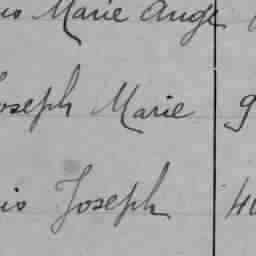 Marie Ange
Joseph Marie 9
Joseph 40